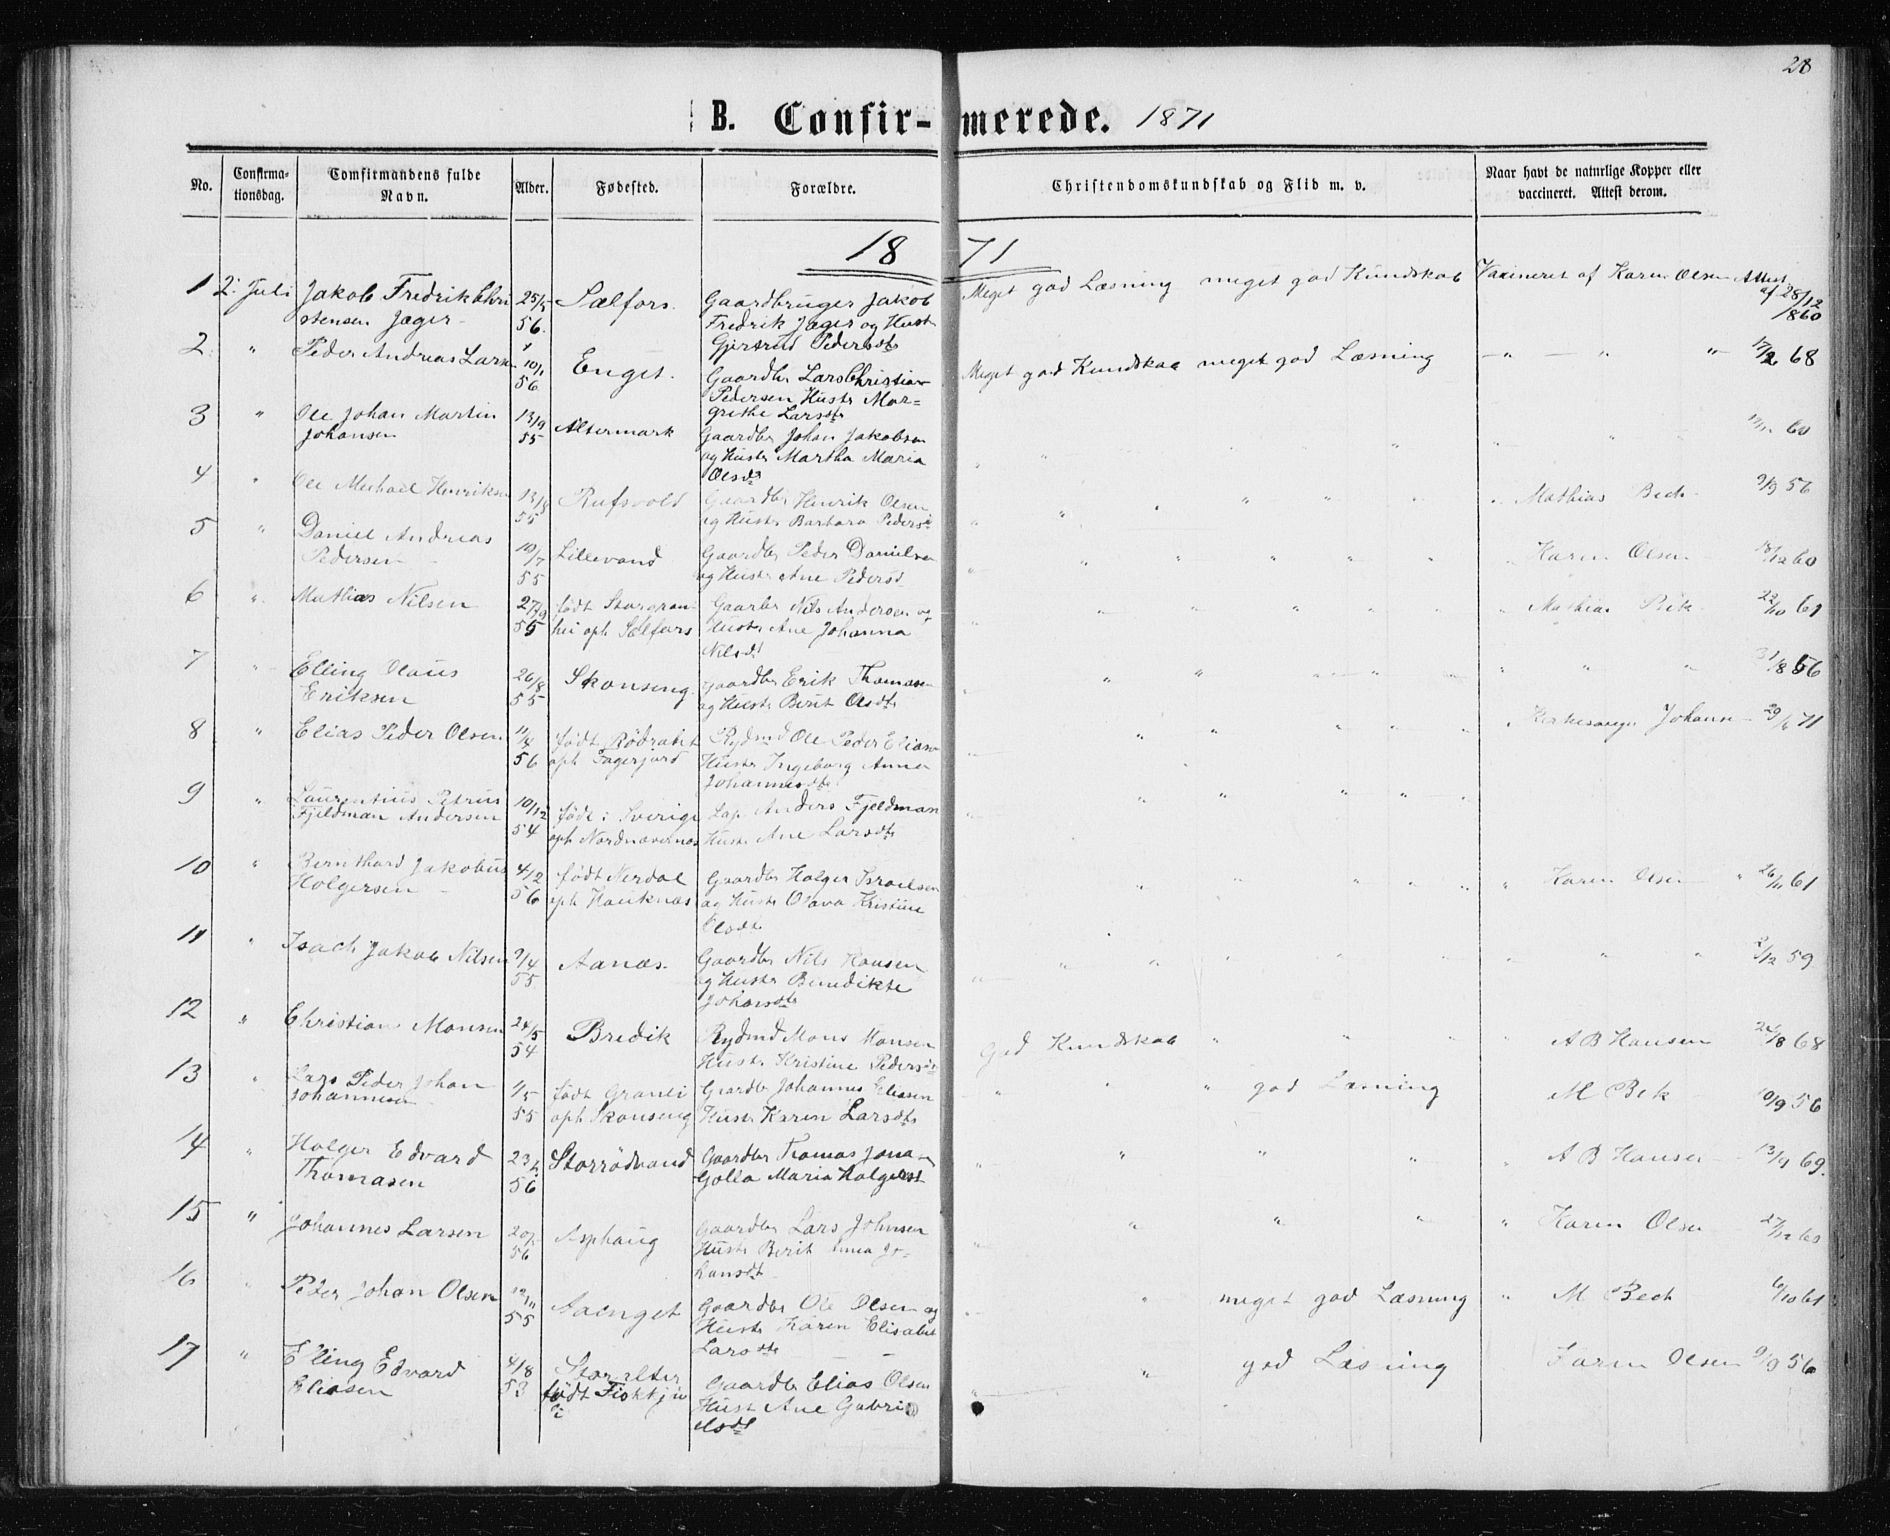 28
B. Confir-merede. 1871
No.
Confirma-
tionsdag.
Comfirmandens fulde
Navn.
Alder.
Fødested.
Forældre.
Christendomskundskab og Flid m. v.
Naar havt de naturlige Kopper eller
vaccineret. Attest derom.
1871
1 2. Juli Jakob Fredrik Chri 25/5 Sælfors. Gaardbruger Jakob Meget god Læsning meget god Kundskab Vaxineret af Karen Olsen Attest
stensen Jæger 56. Fredrik Jæger og Hust. af 28/12
Gjertrud Pedersdt 1860
2. " Peder Andreas Larsen 10/1 Enget. Gaardbr Lars Christian Meget god Kundskab meget god Læsning — " — " " 17/2 68
56 Pedersen Hustr Mar=
grethe Larsdtr
3 " Ole Johan Martin 13/9 Altermark Gaardbr Johan Jakobsen " " " 60
Johansen 55 og Hustr Martha Maria
Olsdt
4 " Ole Michael Henriksen 13/8 Rufsvold Gaardbr Henrik Olsen " " " " Mathias Bech 9/9 56
55 og Hustr Barbara Pedersd
5 " Daniel Andreas 10/7 Lillevand Gaardbr Peder Danielsen " " " Karen Olsen 18/12 60
Pedersen 55 og Hustr Ane Pedersd
6 " Mathias Nilsen 27/9 født Storgran Gaarbr Nils Andersen og " " " " Mathias Bek 22/10 61
55 hei oph Sælfors Hustr Ane Johanna
Nilsdt
7 " Elling Olaus 26/8 Skonseng Gaardbr Erik Thomasen " " " " 31/8 56
Eriksen 55 og Hustr Berit Olsdtr
8 " Elias Peder Olsen 11/4 født Rödvatst Rydmd Ole Peder Eliasen " " " " Kirkesanger Johans 29/6 71
56 oph Fagerjord Hustr Ingeborg Anna
Johannesdtr
9 " Laurentius Petrus 10/12 føde i Sverige Lap Anders Fjeldman " " " "
Fjeldman Andersen 54 oph Nordnævernæs Hustr Ane Larsdtr
10 " Bernthard Jakobus 4/2 født Nerdal Gaardbr Holger Israelsen " " " " Karen Olsen " 26/11 61
Holgersen 56 oph Hauknæs og Hustr Olava Kristine
Olsdt
11 " Isach Jakob Nilsen 9/4 Aanæs. Gaardbr Nils Hansen " " " " " 2/12 59
55 og Hustr Benedikte
Johansdtr
12 " Christian Monsen 24/5 Bredik Rydmd Mons Monsen God Kundskab " " " " A B Hansen 24/8 68
54 Hustr Kristine Pedersdt
13 " Lars Peder Johan 1/5 født Granli Gaardbr Johannes Eliasen " " " god Læsning M Bek 10/9 56
Johannesen 55 oph Skonseng Hustr Karen Larsdtr
14 " Holger Edvard 23/ Storrödvand Gaardbr Thomas Jona " " " " A B Hansen 13/9 69.
Thomasen 56 Golla Maria Holgersdt
15 " Johannes Larsen 20/ Asphaug Gaardbr Lars Johnsen " " " " " Karen Olsen 27/12 60
56 Hustr Berit Anna Jo-
hansdt
16 " Peder Johan Olsen 12/11 Aaenget Gaardbr Ole Olsen og " " meget god Læsning " M Bech 6/10 61
55 Hustr Karen Elisabet
Larsdtr
17 " Elling Edvard 4/8 Storalter Gaardbr Elias Olsen " " god Læsning Karen Olsen 9/9 56
Eliasen 53 født Fiskkjøn Hust Ane Gabri
elsdt